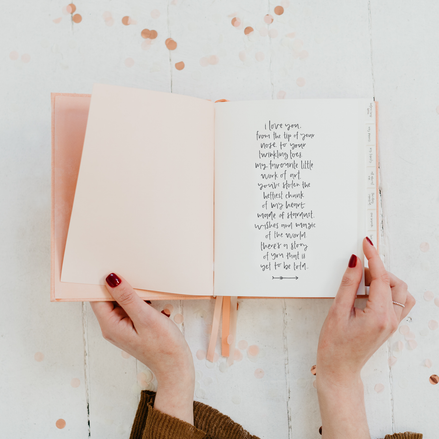 i love you.
from the tip of your
nose to your
twinkling toes.
my favourite little
work of art.
you've stolen the
biggest chunk
of my heart.
made of stardust,
wishes and magic
of the world
there's a story
of you that is
yet to be told.